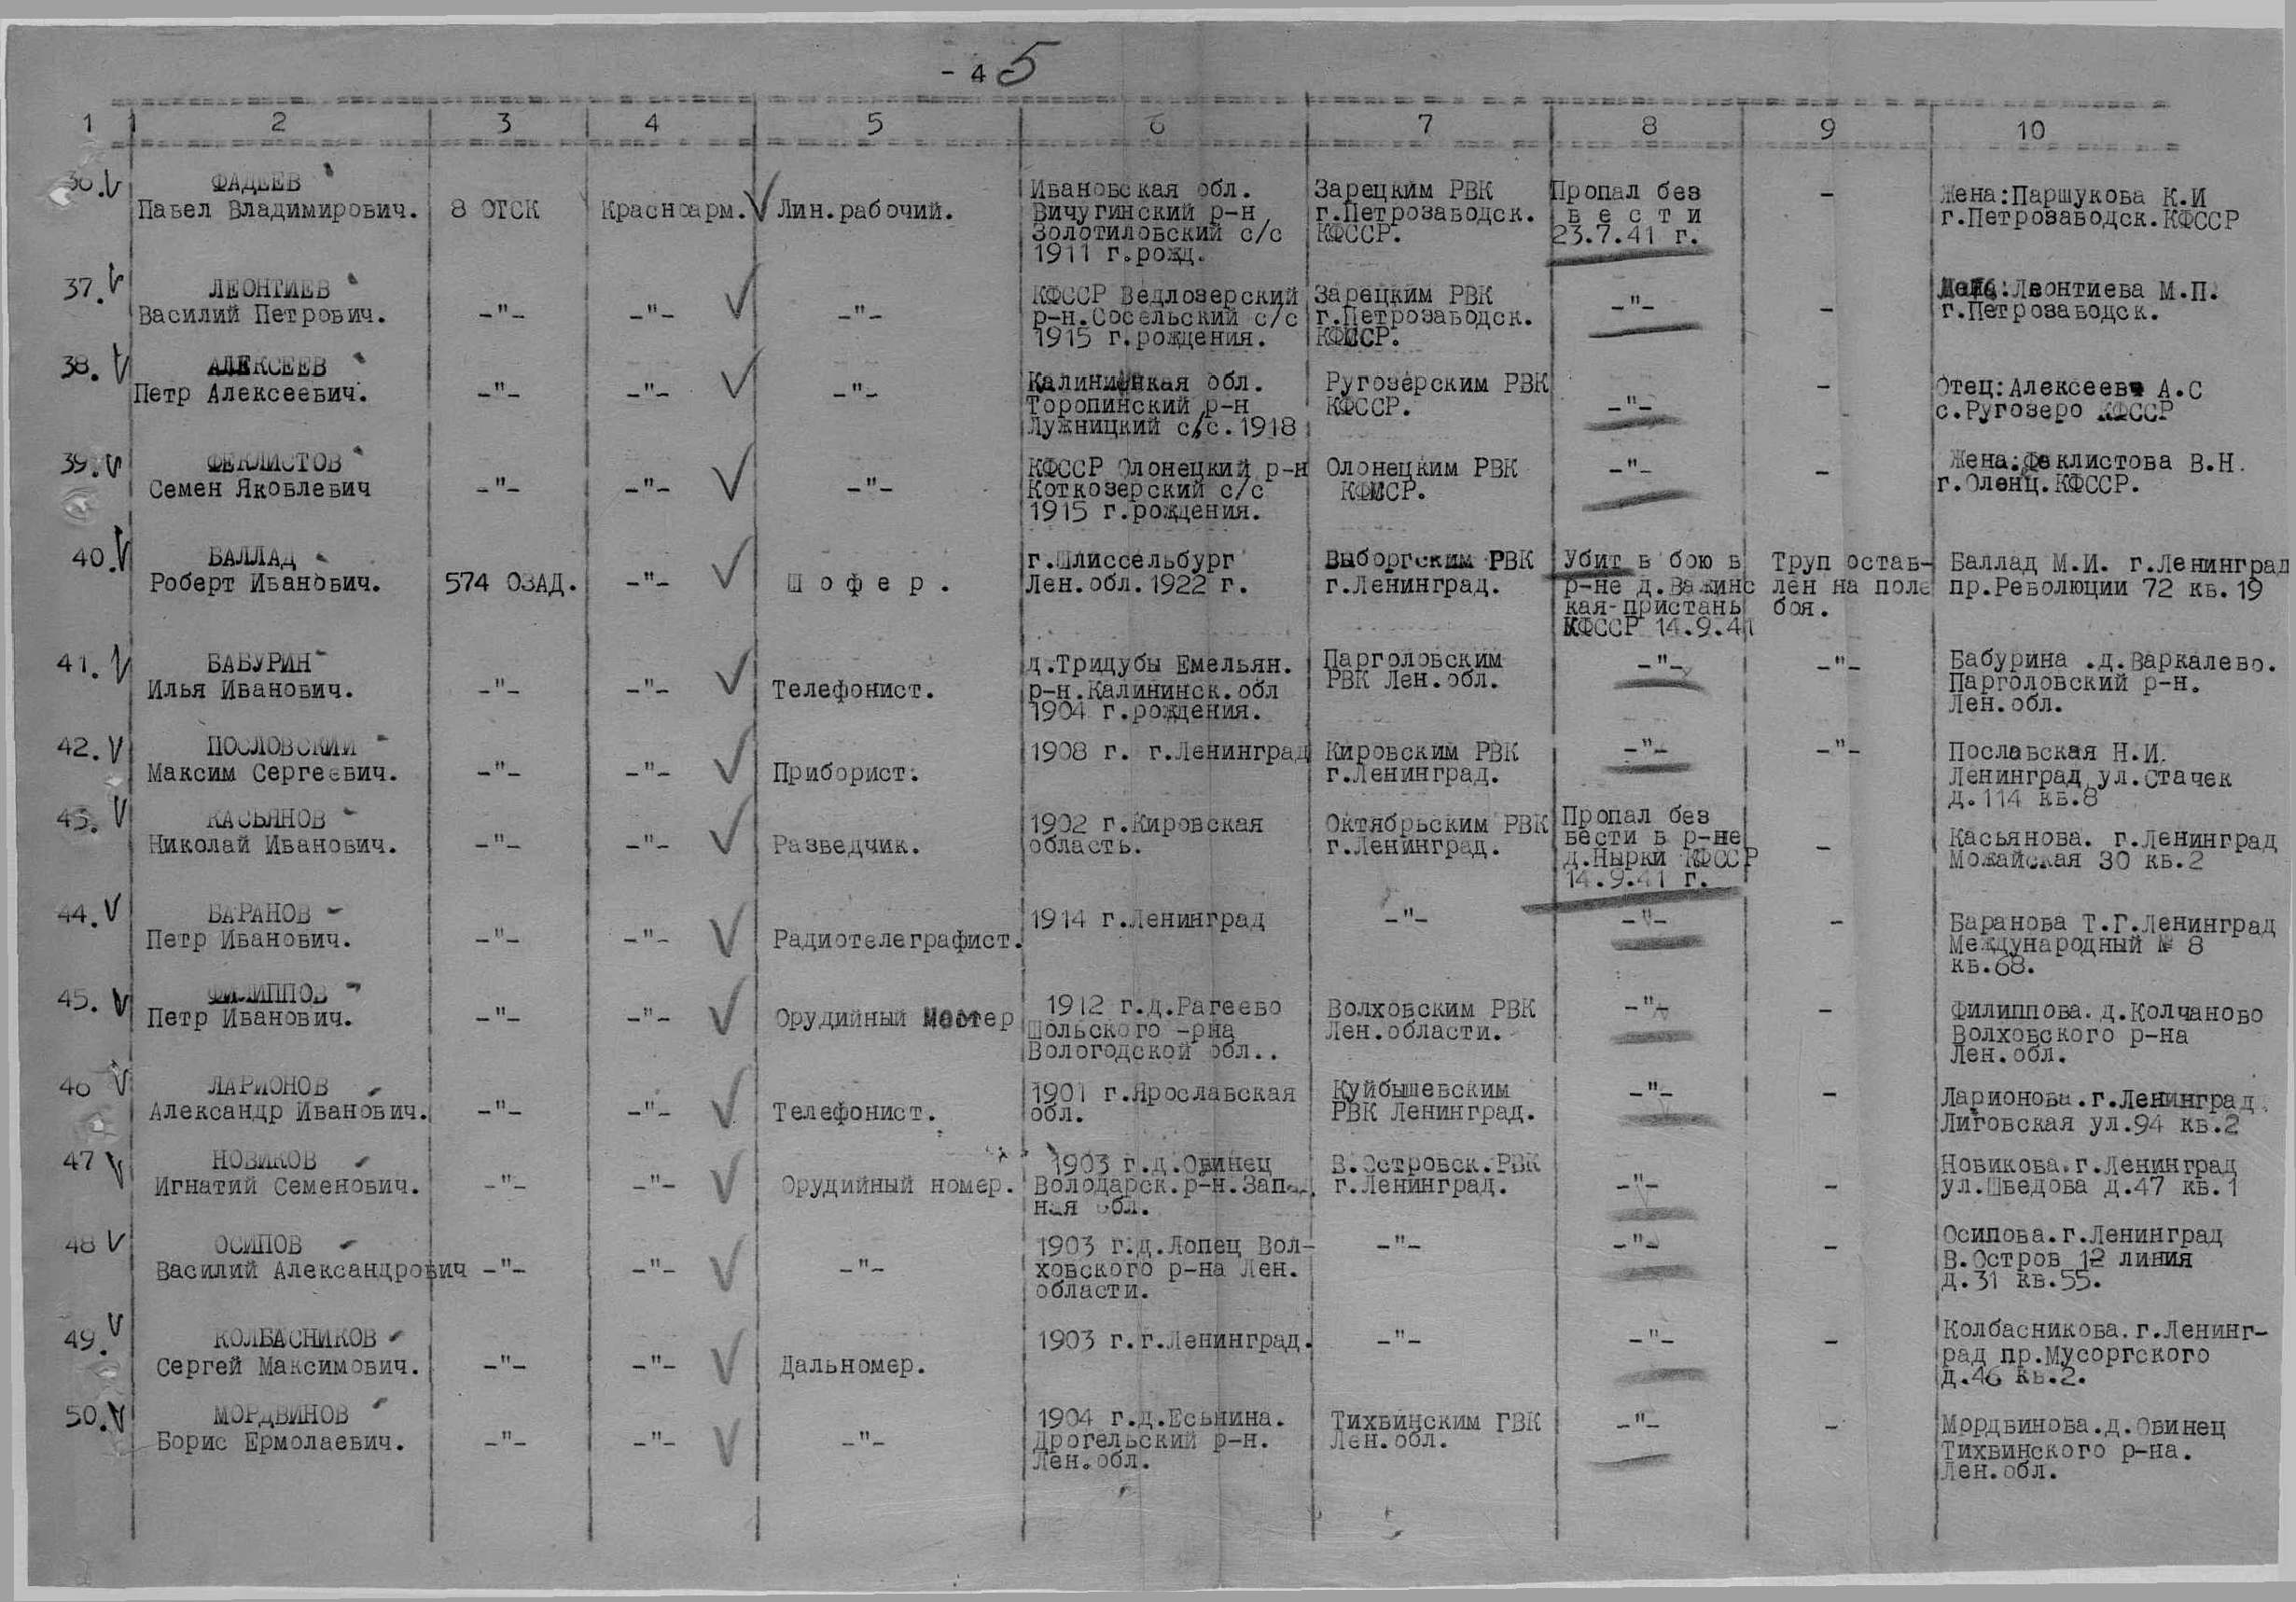 - 4 - 5
1 2 3 4 5 6 7 8 9 10
36. ФАДЕЕВ
Павел Владимирович. 8 ОТСК Красноарм. Лин.рабочий. Ивановская обл.
Вичугинский р-н
Золотиловский с/с
1911 г.рожд. Зарецким РВК
г.Петрозаводск.
КФССР. Пропал без
вести
23.7.41 г. - Жена:Паршукова К.И
г.Петрозаводск.КФССР
37. ЛЕОНТИЕВ
Василий Петрович. -"- -"- -"- КФССР Ведлозерский
р-н.Сосельский с/с
1915 г.рождения. Зарецким РВК
г.Петрозаводск.
КФССР. -"- - Леонтиева М.П.
г.Петрозаводск.
38. АЛЕКСЕЕВ
Петр Алексеевич. -"- -"- -"- обл.
Торопинский р-н
Лужницкий с/с.1918 Ругозерским РВК
КФССР. -"- - Отец:Алексеев А.С
с.Ругозеро КФССР
39. ФЕКЛИСТОВ
Семен Яковлевич -"- -"- -"- КФССР Олонецкий р-н
Коткозерский с/с
1915 г.рождения. Олонецким РВК
КФССР. -"- - Жена:Феклистова В.Н.
г.Оленц.КФССР.
40. БАЛЛАД
Роберт Иванович. 574 ОЗАД. -"- Шофер. г.Шлиссельбург
Лен.обл.1922 г. Выборгским РВК
г.Ленинград. Убит в бою в
р-не д.Важинс
кая-пристань
КФССР 14.9.41 Труп остав-
лен на поле
боя. Баллад М.И. г.Ленинград
пр.Революции 72 кв.19
41. БАБУРИН
Илья Иванович. -"- -"- Телефонист. д.Тридубы Емельян.
р-н.Калининск.обл
1904 г.рождения. Парголовским
РВК Лен.обл. -"- -"- Бабурина .д.Варкалево.
Парголовский р-н.
Лен.обл.
42. ПОСЛОВСКИЙ
Максим Сергеевич. -"- -"- Приборист. 1908 г. г.Ленинград Кировским РВК
г.Ленинград. -"- -"- Пославская Н.И.
Ленинград ул.Стачек
д.114 кв.8
43. КАСЬЯНОВ
Николай Иванович. -"- -"- Разведчик. 1902 г.Кировская
область. Октябрьским РВК
г.Ленинград. Пропал без
вести в р-не
д.Нырки КФССР
14.9.41 г. - Касьянова. г.Ленинград
Можайская 30 кв.2
44. БАРАНОВ
Петр Иванович. -"- -"- Радиотелеграфист. 1914 г.Ленинград -"- -"- - Баранова Т.Г.Ленинград
Международный № 8
кв.68.
45. ФИЛИППОВ
Петр Иванович. -"- -"- Орудийный Мастер 1912 г.д.Рагеево
Шольского -рна
Вологодской обл.. Волховским РВК
Лен.области. -"- - Филиппова. д.Колчаново
Волховского р-на
Лен.обл.
46 ЛАРИОНОВ
Александр Иванович. -"- -"- Телефонист. 1901 г.Ярославская
обл. Куйбышевским
РВК Ленинград. -"- - Ларионова.г.Ленинград.
Лиговская ул.94 кв.2
47 НОВИКОВ
Игнатий Семенович. -"- -"- Орудийный номер. 1903 г.д.Овинец
Володарск.р-н.Запад
ная обл. В.Островск.РВК
г.Ленинград. -"- - Новикова.г.Ленинград
ул.Шведова д.47 кв.1
48 ОСИПОВ
Василий Александрович -"- -"- -"- 1903 г.д.Лопец Вол-
ховского р-на Лен.
области. -"- -"- - Осипова.г.Ленинград
В.Остров 12 линия
д.31 кв.55.
49. КОЛБАСНИКОВ
Сергей Максимович. -"- -"- Дальномер. 1903 г.г.Ленинград. -"- -"- - Колбасникова.г.Ленинг-
рад пр.Мусоргского
д.46 кв.2.
50. МОРДВИНОВ
Борис Ермолаевич. -"- -"- -"- 1904 г.д.Есьнина.
Дрогельский р-н.
Лен.обл. Тихвинским ГВК
Лен.обл. -"- - Мордвинова.д.Овинец
Тихвинского р-на.
Лен.обл.